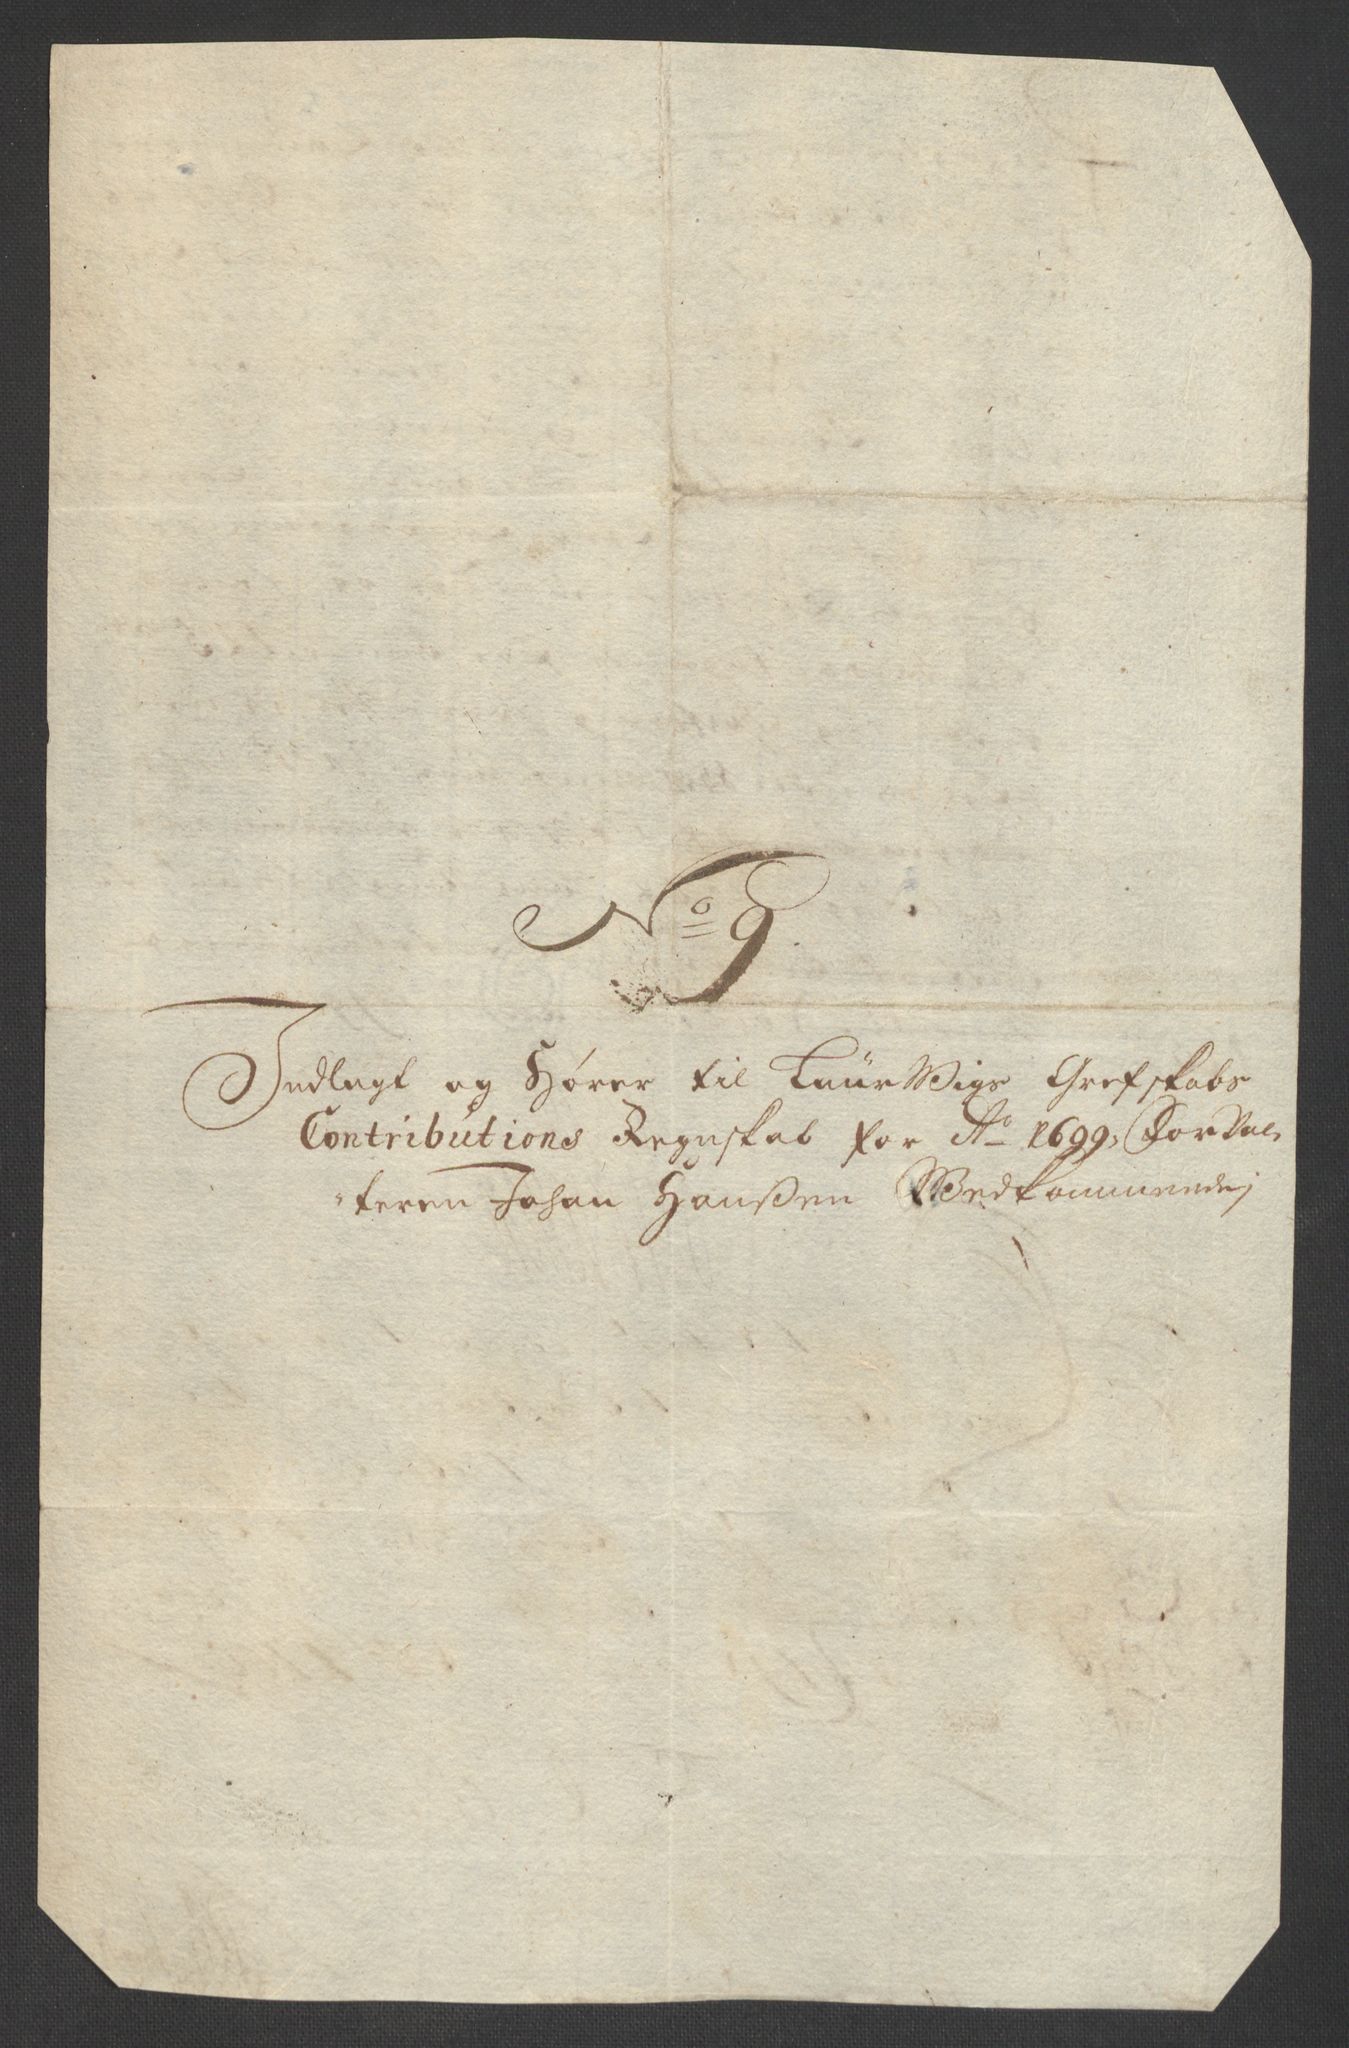 No 9
Indlagt og Hører til LaurWigs Grefskabs
Contributions Regnskab for Ao 1699, ForVal-
teren Johan Hanßen Wedkommende